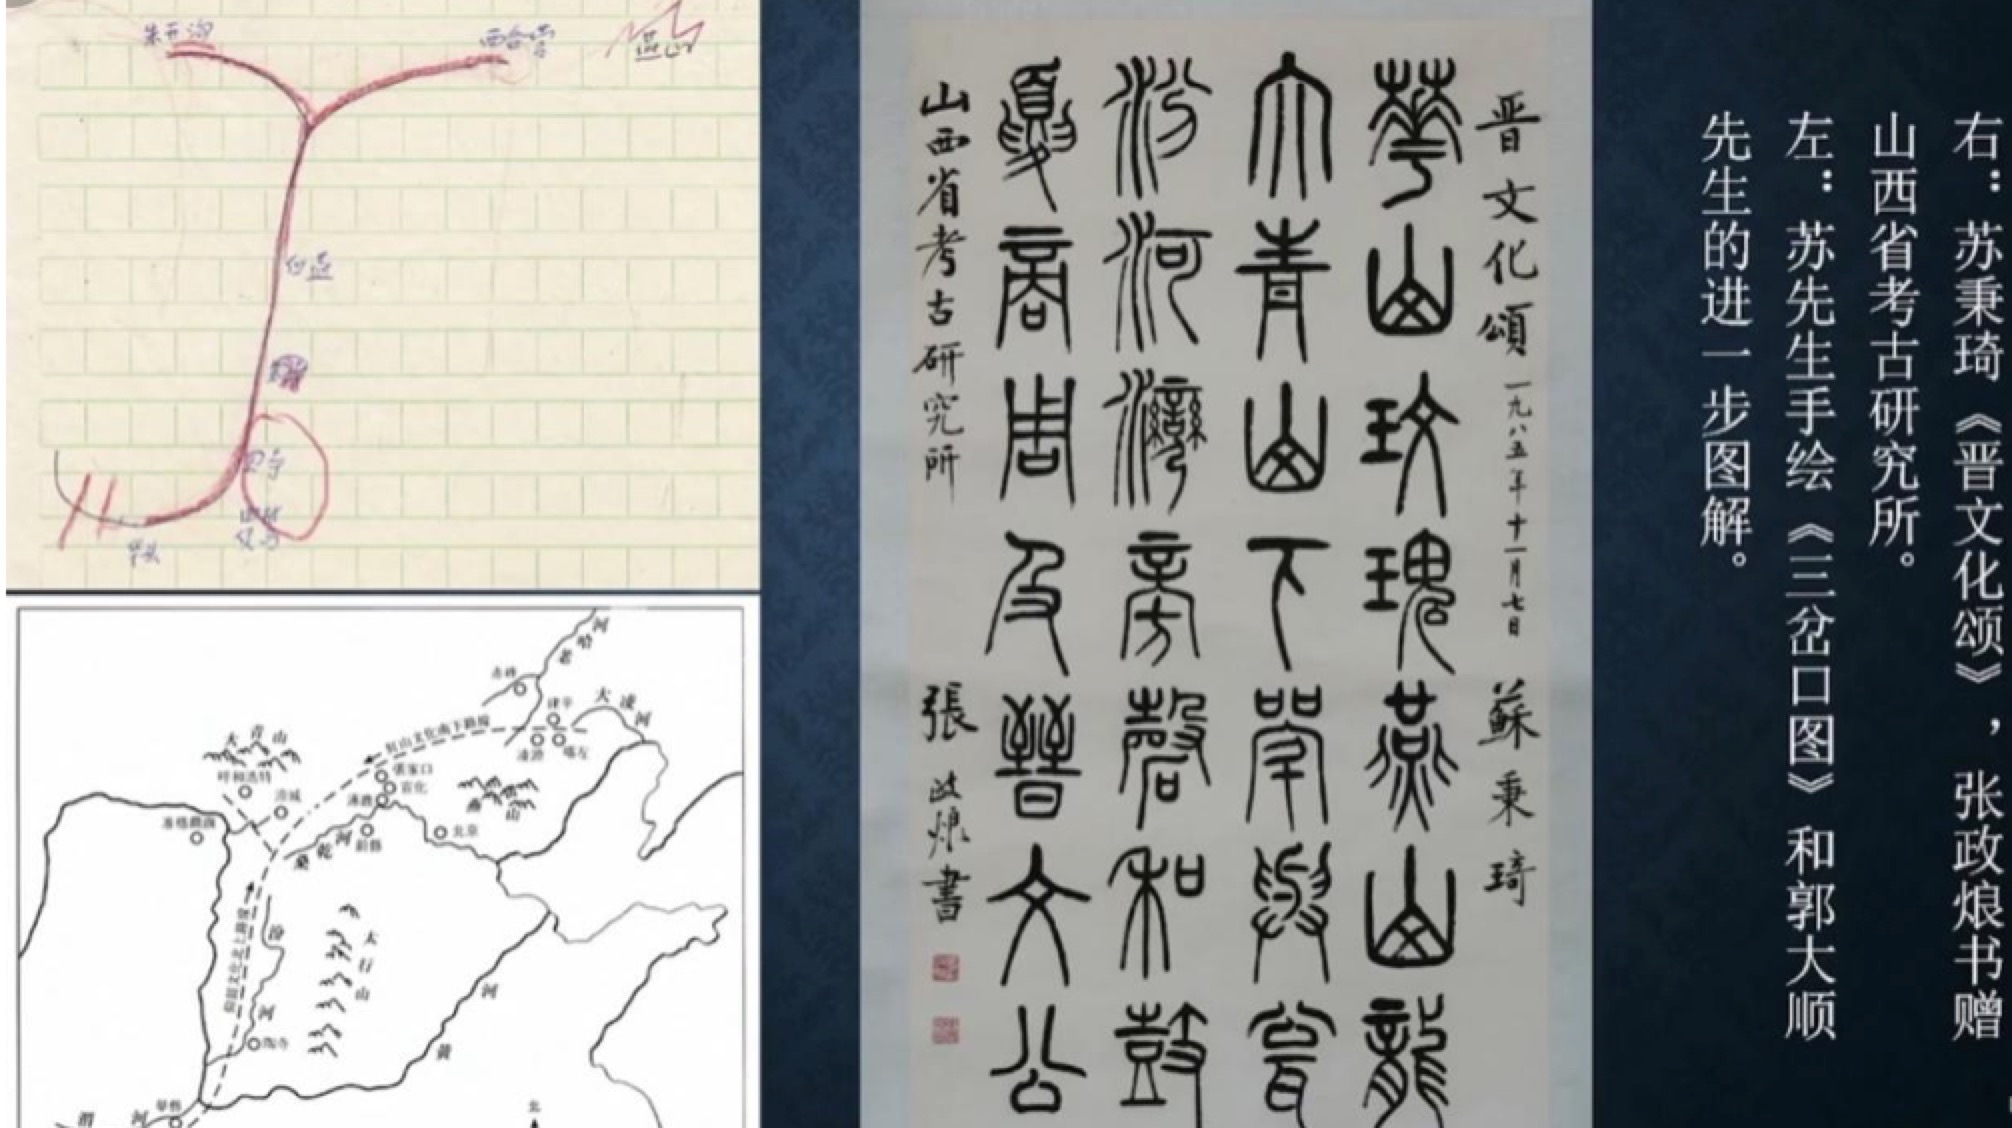 右：苏秉琦《晋文化颂》，张政烺书赠
山西省考古研究所。
左：苏先生手绘《三岔口图》和郭大顺
先生的进一步图解。
晋文化頌 一九八五年十一月七日 蘇秉琦
華山玫瑰燕山龍
大青山下斝與瓮
汾河灣旁磬和鼓
夏商周及晉文公
山西省考古研究所 張政烺書
朱开沟
西合营
燕山
老哈河
赤峰
建平
大凌河
凌源
喀左
红山文化南下路线
大青山
呼和浩特
凉城
准格爾旗
張家口
宣化
涿鹿
蔚縣
桑乾河
北京
燕山
太行山
汾河
陶寺
黄河
華縣
渭河
北